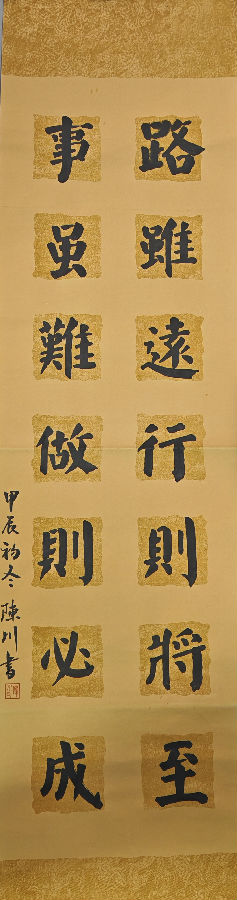 路雖遠行則將至
事虽難做則必成
甲辰初冬陳川書